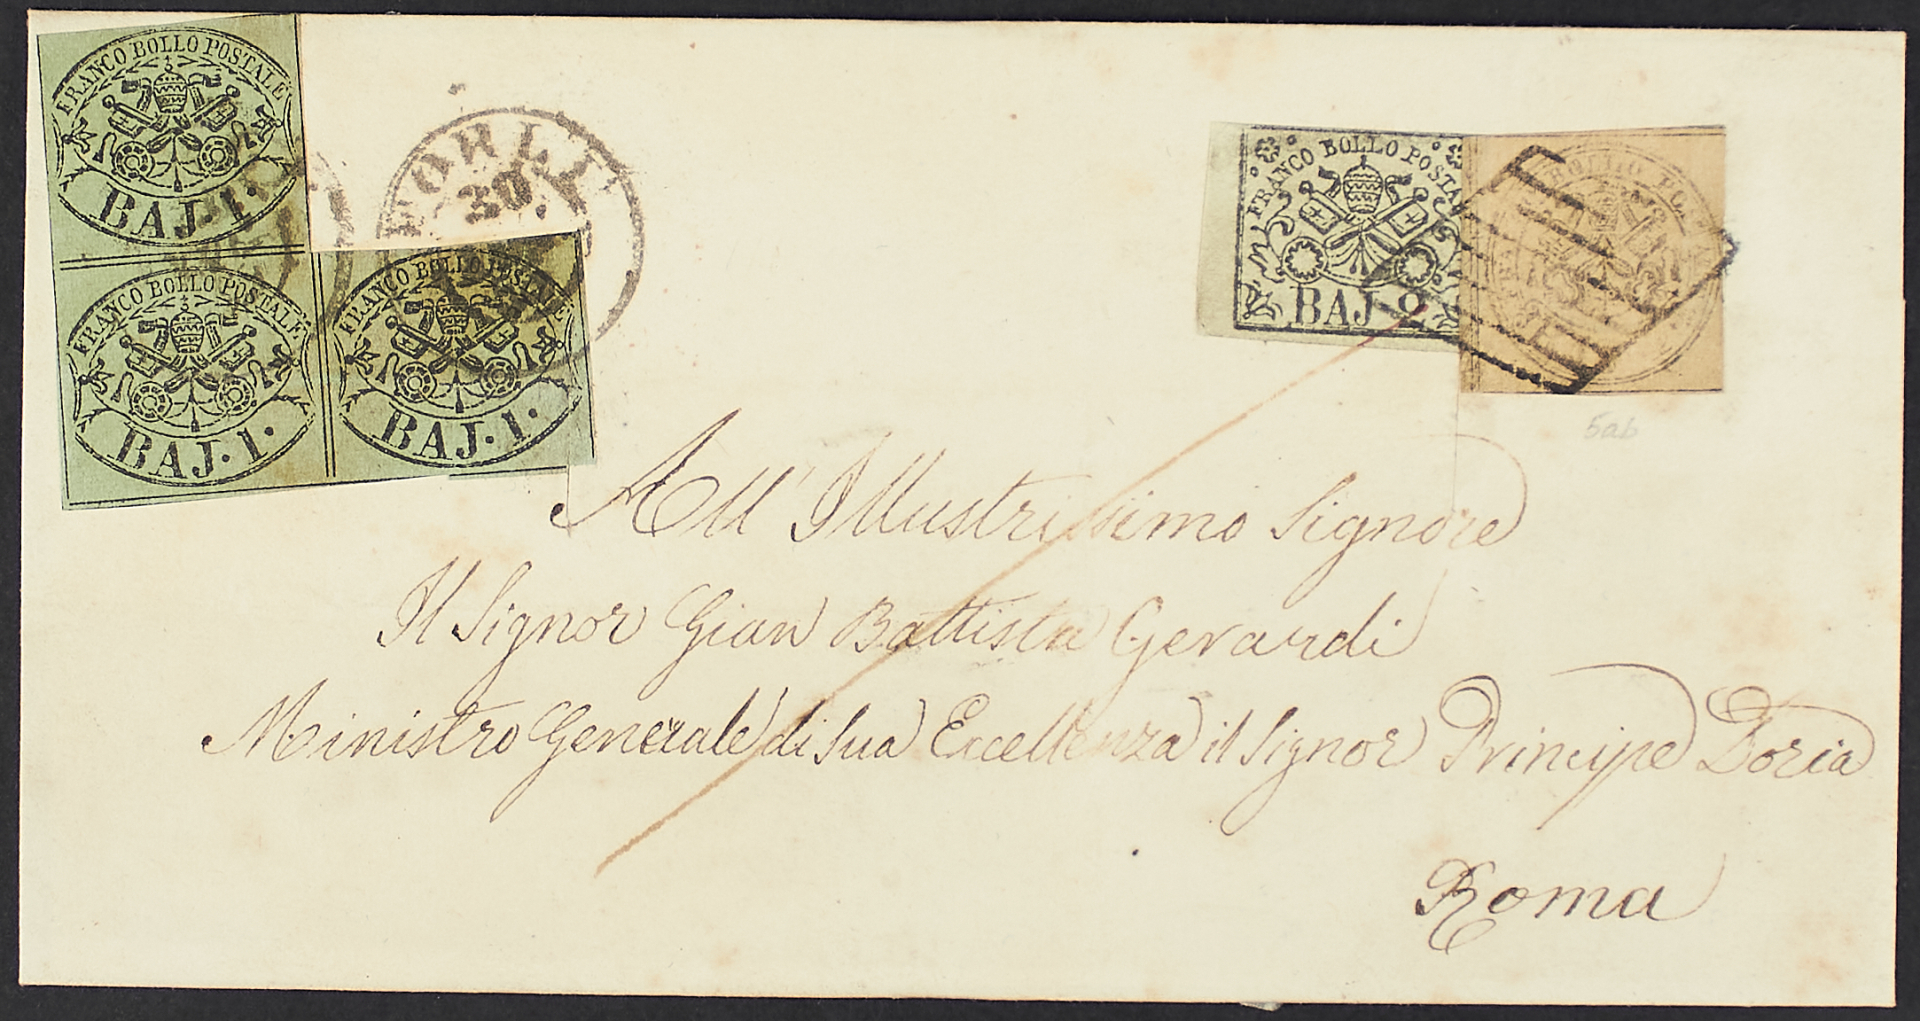 FRANCO BOLLO POSTALE
BAJ. 1.
FRANCO BOLLO POSTALE
BAJ. 1.
FRANCO BOLLO POSTALE
BAJ. 1.
FORLI
30
FRANCO BOLLO POSTA
BAJ 2
BOLLO PO
5ab
All' Illustrissimo Signore
Il Signor Gian Battista Gerardi
Ministro Generale di Sua Eccellenza il Signor Principe Doria
Roma